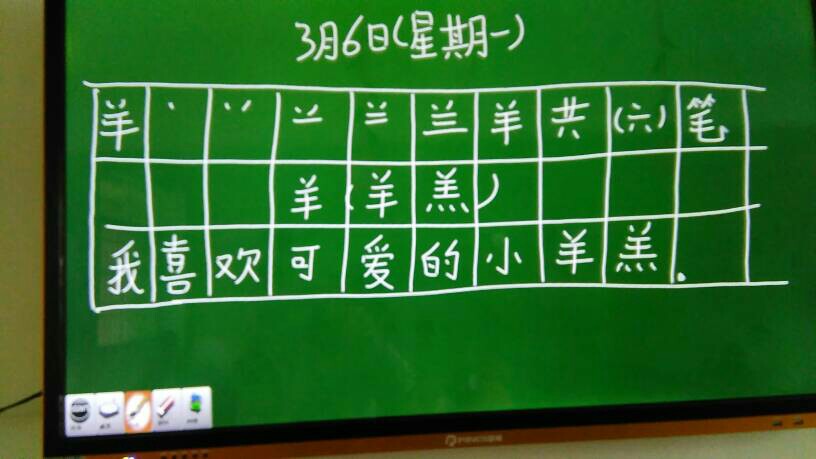 3月6日(星期一)
羊 丶 丷 䒑 兰 羊 共 (六) 笔
羊(羊羔)
我喜欢可爱的小羊羔.